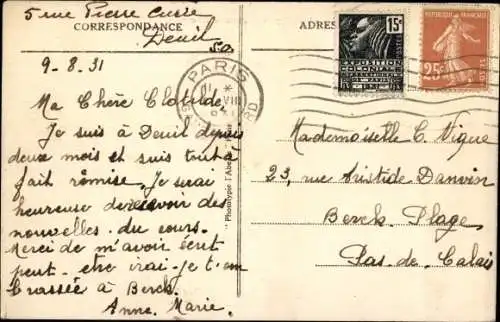 5 rue Pierre Curie
CORRESPONDANCE
Deuil
S.O.
9-8.31
Ma Chère Clotilde,
Je suis à Deuil depuis
deux mois et suis tout à
fait remise. Je serai
heureuse de recevoir des
nouvelles du cours.
Merci de m'avoir écrit
peut-etre irai-je t'em
brassée à Berck.
Anne. Marie.
Phototypie l'Abeille
ADRES
PARIS
VIII
RD
15c
POSTES
EXPOSITION
COLONIALE
INTERNATIONALE
PARIS 1931
REPUBLIQUE FRANÇAISE
25c
POSTES
Mademoiselle C. Vigue
23, rue Aristide Danvin
Berck Plage
Pas-de-Calais